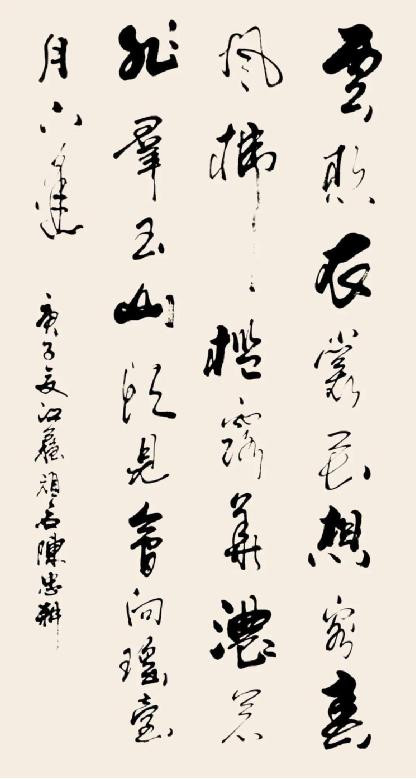 雲想衣裳花想容春
風拂檻露華濃若
非羣玉山頭見會向瑤臺
月下逢
庚子夏江蘇陳忠